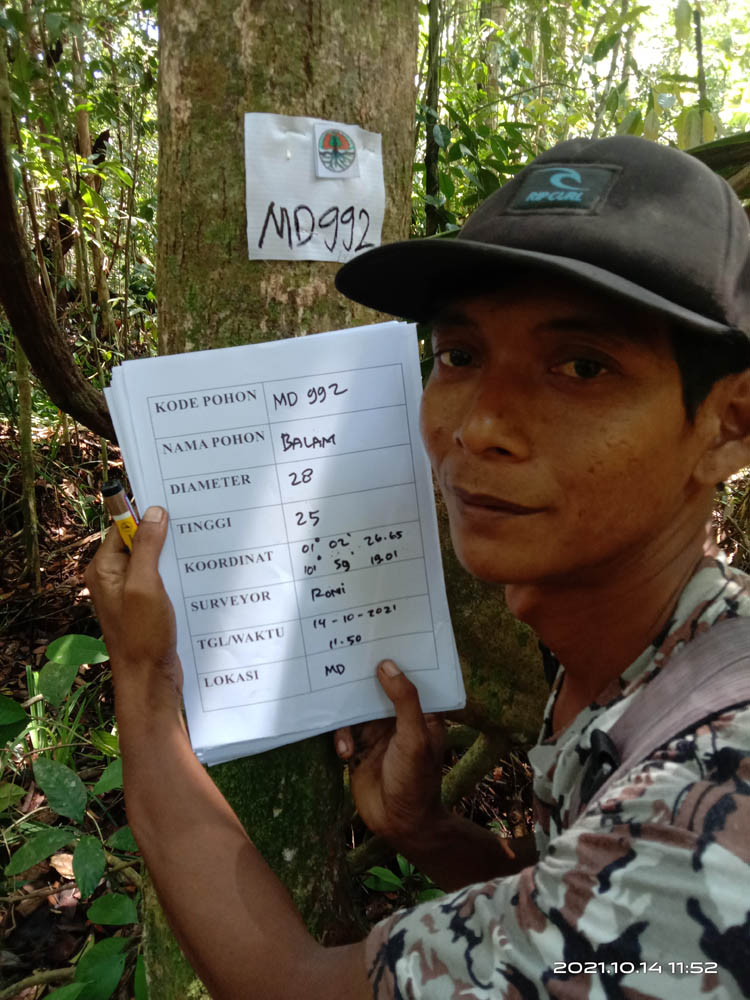 MD 992
RIP CURL
KODE POHON MD 992
NAMA POHON BALAM
DIAMETER 28
TINGGI 25
KOORDINAT 01° 02' 26.65
101° 59 19.01
SURVEYOR Romi
TGL/WAKTU 14-10-2021
11.50
LOKASI MD
2021.10.14 11:52